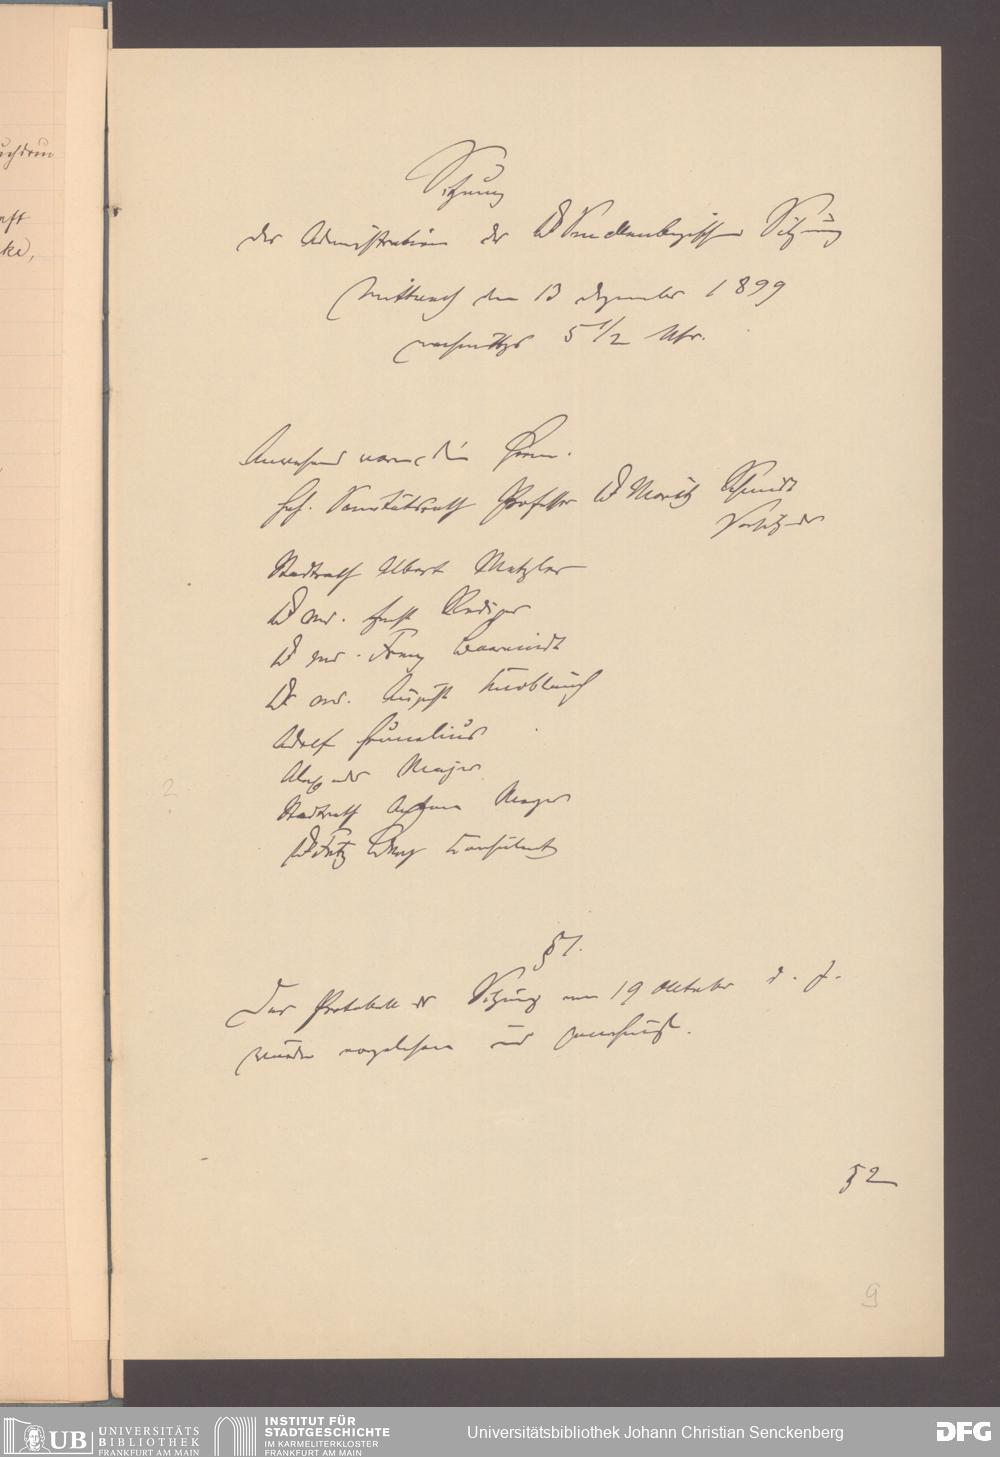 Sitzung
der Administration der Dr Senckenbergischen Stiftung
Mittwoch den 13 Dezember 1899
nachmittgs 5 1/2 Uhr.
Anwesend waren die Herren.
Geh. Sanitätsrath Professor Dr Moritz Schmidt
Vorsitzender
Stadtrath Albert Metzler
Dr med. Ernst Roediger
Dr med. Franz
Dr med. August Knoblauch
Adolf Grunelius
Alexander Majer
Stadtrath Mayer
Dr Fritz Berg Consulent
§1.
Das Protokoll der Sitzung vom 19 Oktober d. J.
wurde vorgelesen und genehmigt.
§2
9
2
UB
UNIVERSITÄTS
BIBLIOTHEK
FRANKFURT AM MAIN
INSTITUT FÜR
STADTGESCHICHTE
IM KARMELITERKLOSTER
FRANKFURT AM MAIN
Universitätsbibliothek Johann Christian Senckenberg
DFG